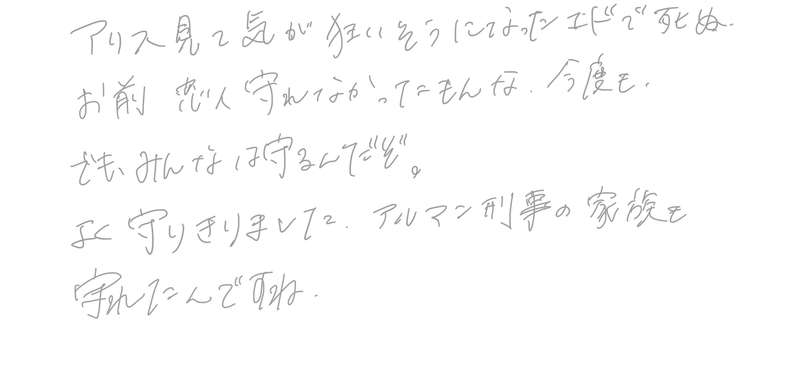 アリス見て気が狂いそうになったエドで死ぬ.
お前 恋人守れてなかったもんな. 今度も.
でも、みんなは守るんだぞ。
よく守りきりました. アルマン刑事の家族も
守れたんですね.